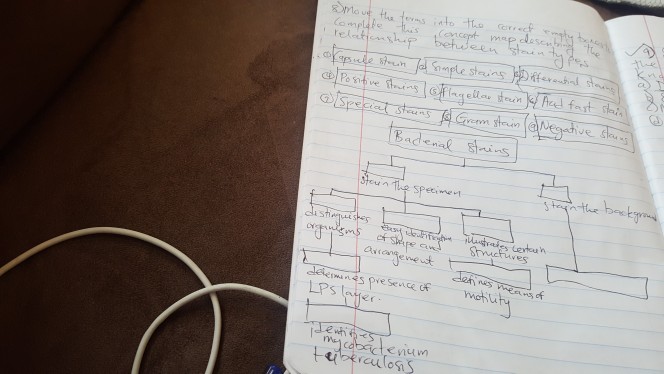 8) Move the terms into the correct empty boxes to
complete this concept map describing the
relationship between stain types
① Capsule stain ② Simple stains ③ Differential stains
④ Positive stains ⑤ Flagellar stain ⑥ Acid fast stain
⑦ Special stains ⑧ Gram stain ⑨ Negative stains
Bacterial stains
Stain the specimen
Stain the background
distinguishes
organisms
easy identification
of shape and
arrangement
illustrates certain
structures
determines presence of
LPS layer.
defines means of
motility
identifies
mycobacterium
tuberculosis
9)
the
a)